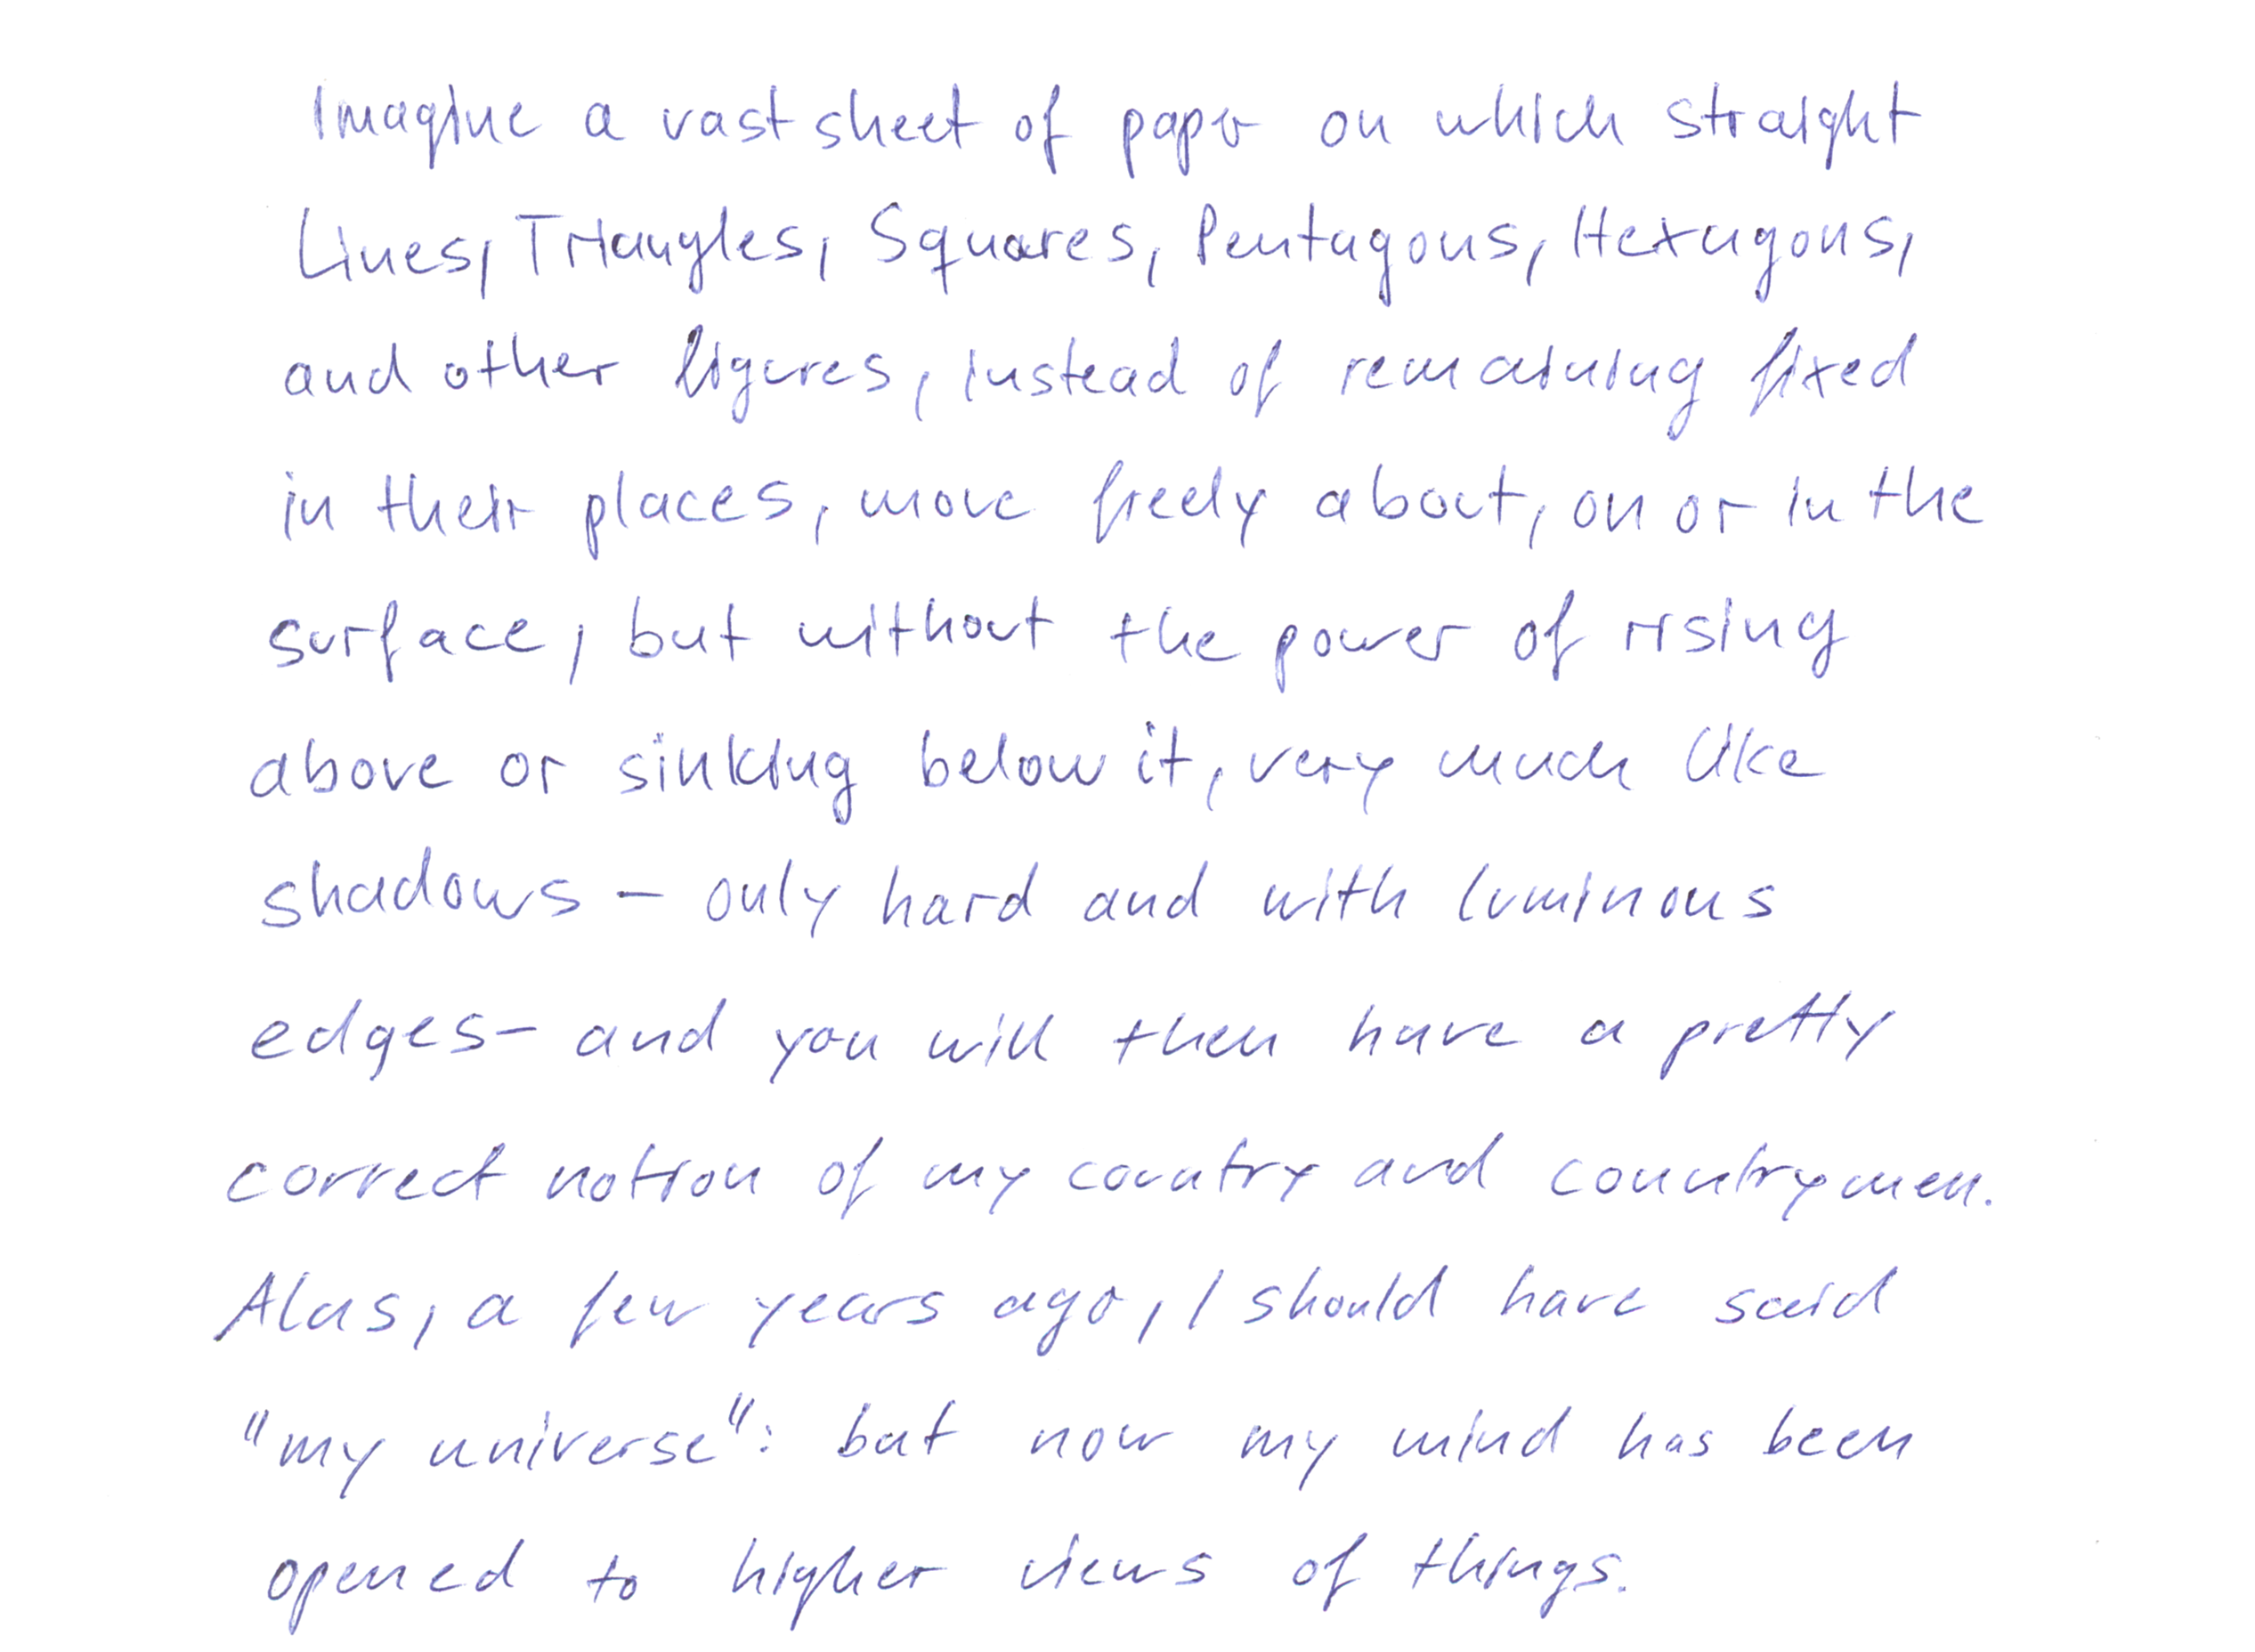 Imagine a vast sheet of paper on which straight
Lines, Triangles, Squares, Pentagons, Hexagons,
and other figures, instead of remaining fixed
in their places, move freely about, on or in the
surface, but without the power of rising
above or sinking below it, very much like
shadows - only hard and with luminous
edges - and you will then have a pretty
correct notion of my country and countrymen.
Alas, a few years ago, I should have said
"my universe": but now my mind has been
opened to higher views of things.